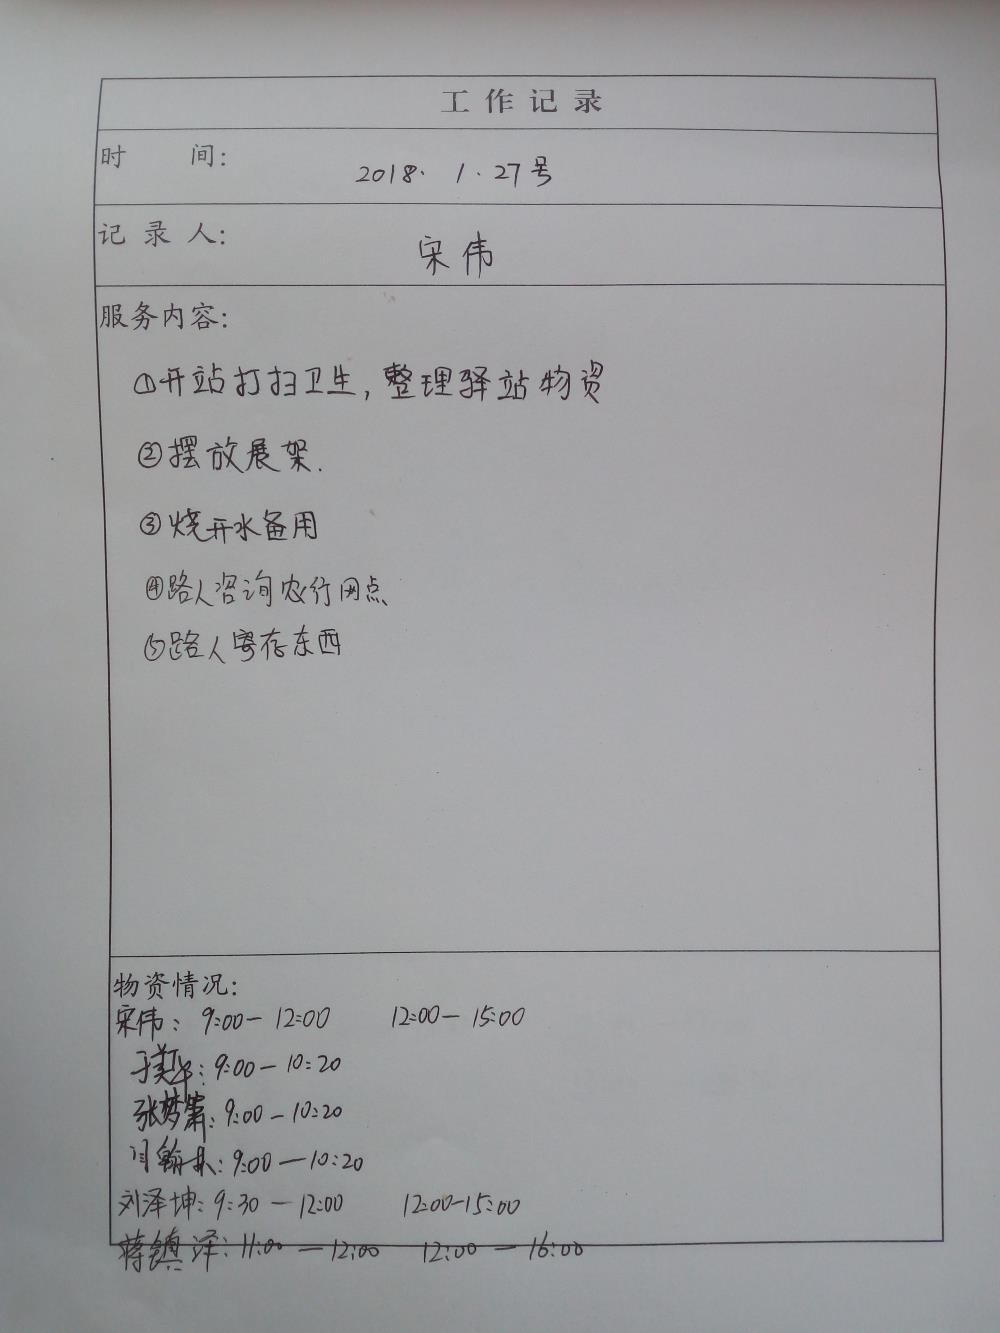 工作记录
时 间: 2018. 1. 27号
记 录 人: 宋伟
服务内容:
①开站打扫卫生,整理驿站物资
②摆放展架.
③烧开水备用
④路人咨询农行网点
⑤路人寄存东西
物资情况:
宋伟: 9:00-12:00 12:00-15:00
于: 9:00-10:20
张梦: 9:00-10:20
翰: 9:00-10:20
刘泽坤: 9:30-12:00 12:00-15:00
蒋镇泽: 11:00-12:00 12:00-16:00